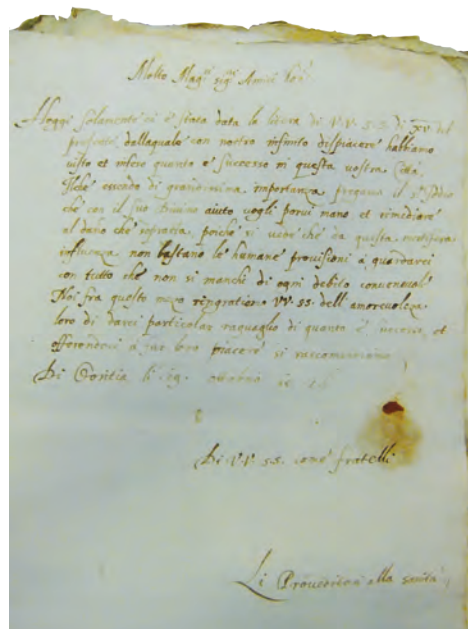 Molto Mag.ci sig.ri Amici hon.
Hoggi solamente ci è stata data la lettera di V.V. S.S. di XV del
presente dallaquale con nostro infinito dispiacere habbiamo
visto et inteso quanto è successo in questa vostra Città,
che con il suo Divino aiuto vogli porvi mano et rimediare
al daño che soprastà, poiche si vede che da questa
influenza non bastano le humane provisioni a guardarci
con tutto che non si manchi di ogni debito
Noi fra questo mezo ringratiamo VV. SS. dell'amorevolezza
loro di darci particolar raguaglio di quanto è successo, et
offerendoci a far loro piacere si raccomandiamo
Di Goritia li
Di V.V. S.S. come fratelli
Li Proveditori alla sanità